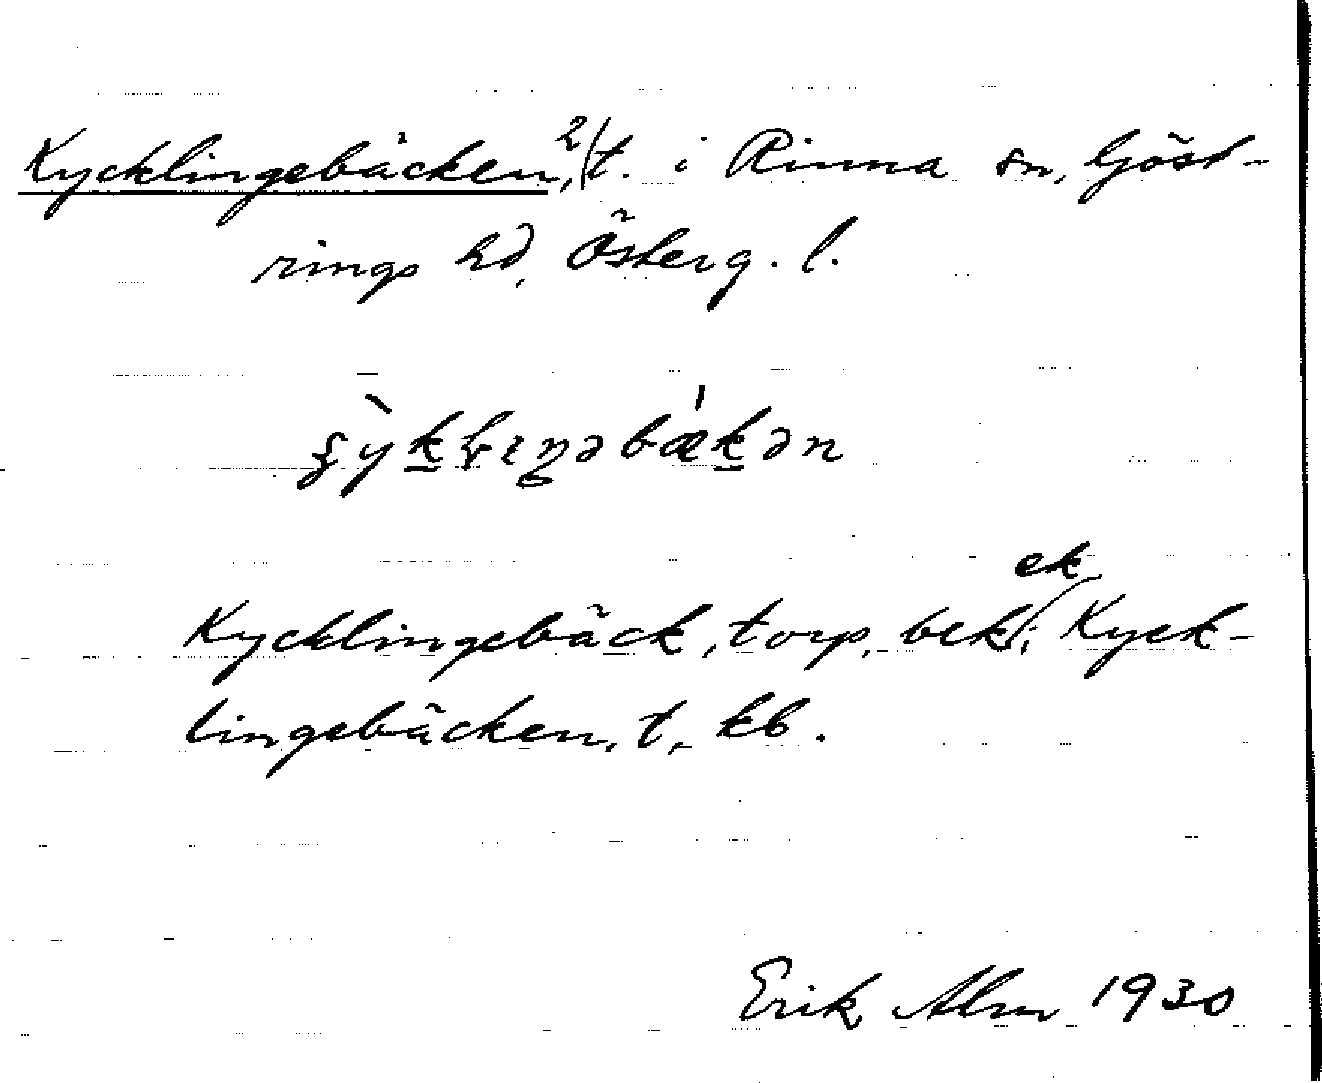 Kycklingebäcken, 2/t. i Rinna sn, Göst-
rings hd, Österg. l.
Kycklingebäck, torp, bek, ek; Kyck-
lingebäcken, t., kb.
Erik Alm 1930